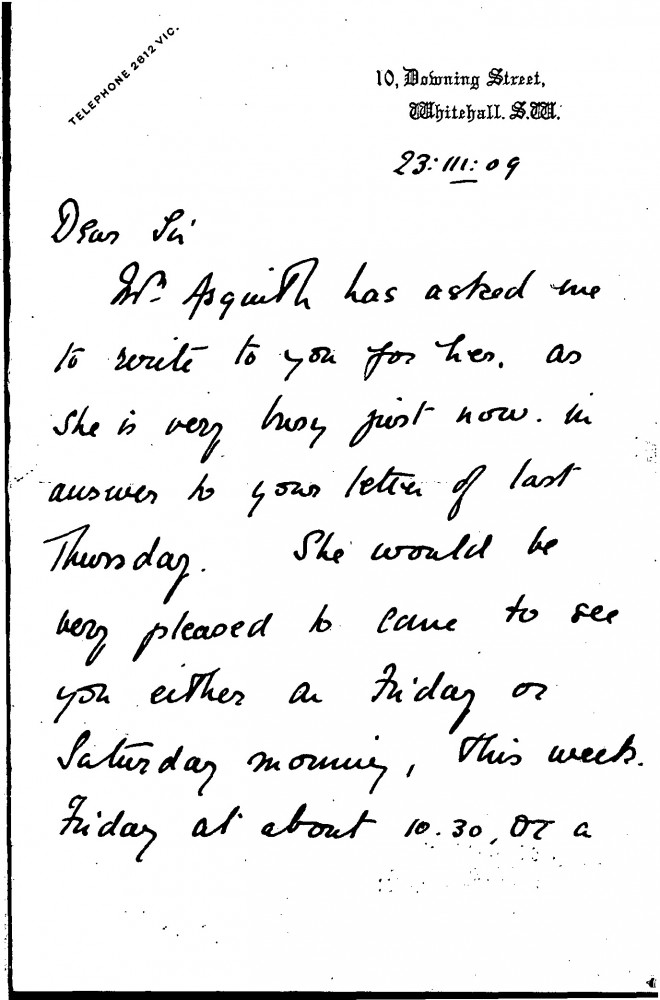 TELEPHONE 2812 VIC.
10, Downing Street,
Whitehall. S.W.
23: III: 09
Dear Sir
Mrs. Asquith has asked me
to write to you for her, as
she is very busy just now. in
answer to your letter of last
Thursday. She would be
very pleased to come to see
you either on Friday or
Saturday morning, this week.
Friday at about 10.30, or a